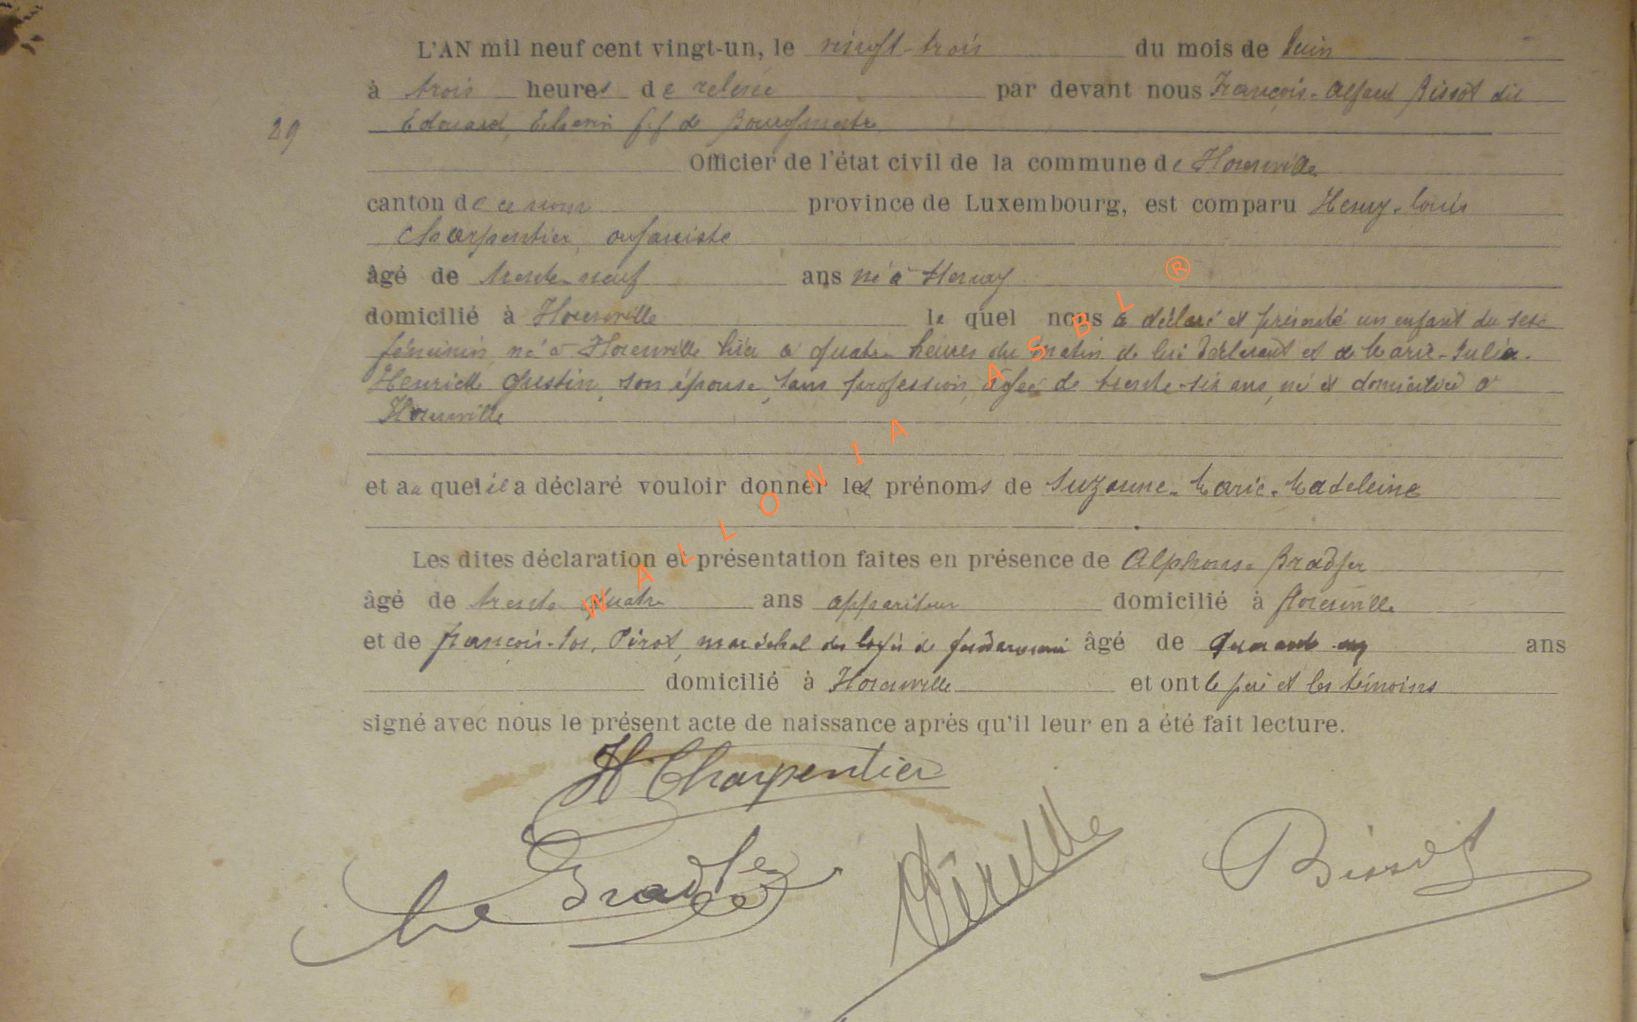 L'AN mil neuf cent vingt-un, le vingt-trois du mois de Juin
à trois heures de relevée par devant nous François-Alfred Bissot dit
29
Edouard, Echevin f.f de Bourgmestre
Officier de l'état civil de la commune de Florenville
canton de ce nom province de Luxembourg, est comparu Henry-Louis
Charpentier,
âgé de trente-neuf ans né à
domicilié à Florenville le quel nous a déclaré et présenté un enfant du sexe
féminin, né à Florenville hier à quatre heures du matin de lui déclarant et de Marie-Julia-
Henriette son épouse, sans profession, âgée de trente-six ans, né et domiciliée à
Florenville
et au quel il a déclaré vouloir donner les prénoms de Suzanne-Marie-Madeleine
Les dites déclaration et présentation faites en présence de Alphonse Bradfer
âgé de trente quatre ans appariteur domicilié à Florenville
et de François-Jos. maréchal des logis de gendarmerie âgé de quarante ans
domicilié à Florenville et ont le père et les témoins
signé avec nous le présent acte de naissance après qu'il leur en a été fait lecture.
H Charpentier
Bradfer
Bissot
WALLONIA ASBL ®